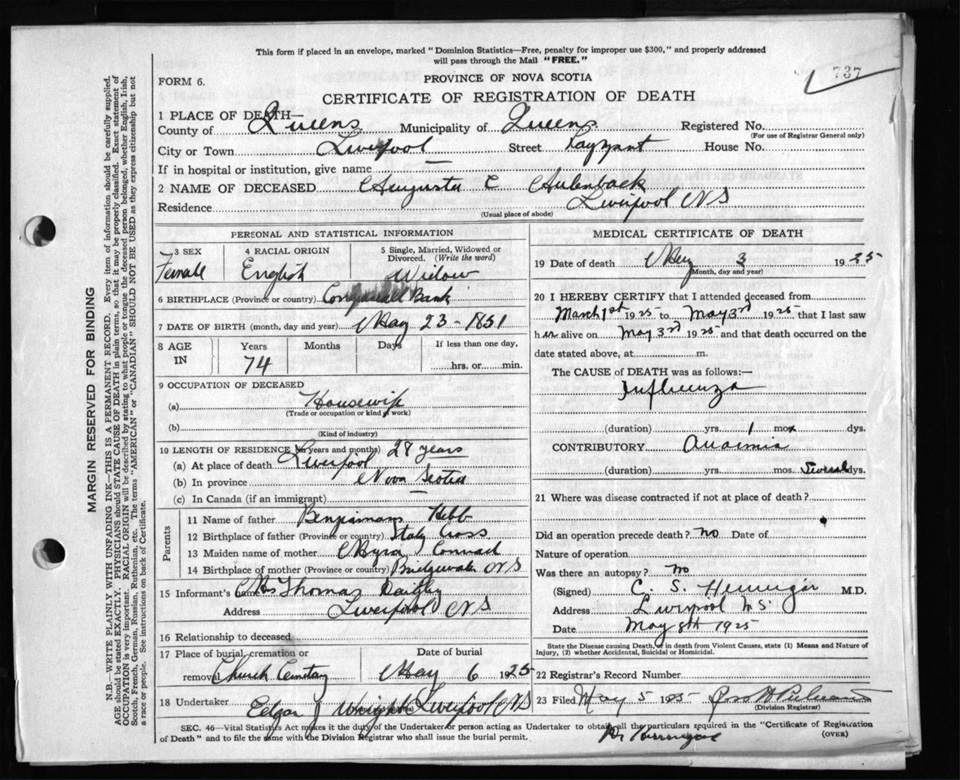 This form if placed in an envelope, marked "Dominion Statistics—Free, penalty for improper use $300," and properly addressed
will pass through the Mail "FREE."
737
FORM 6.
PROVINCE OF NOVA SCOTIA
CERTIFICATE OF REGISTRATION OF DEATH
1 PLACE OF DEATH—
County of Queens Municipality of Queens Registered No.
(For use of Registrar General only)
City or Town Liverpool Street House No.
If in hospital or institution, give name
2 NAME OF DECEASED Augusta C Aulenback
Residence Liverpool NS
(Usual place of abode)
PERSONAL AND STATISTICAL INFORMATION
3 SEX 4 RACIAL ORIGIN 5 Single, Married, Widowed or Divorced. (Write the word)
Female English Widow
6 BIRTHPLACE (Province or country) Bank
7 DATE OF BIRTH (month, day and year) May 23-1851
8 AGE IN Years Months Days If less than one day,
74 hrs. or min.
9 OCCUPATION OF DECEASED
(a) Housewife
(Trade or occupation or kind of work)
(b)
(Kind of industry)
10 LENGTH OF RESIDENCE (in years and months) 28 years
(a) At place of death Liverpool
(b) In province Nova Scotia
(c) In Canada (if an immigrant)
Parents
11 Name of father Benjiaman Hebb
12 Birthplace of father (Province or country) Cross
13 Maiden name of mother Conrad
14 Birthplace of mother (Province or country) Bridgewater NS
15 Informant's name Mrs Thomas
Address Liverpool NS
16 Relationship to deceased
17 Place of burial, cremation or removal Date of burial
Church Cemetary May 6 1925
18 Undertaker Edgar J Wright Liverpool NS
MEDICAL CERTIFICATE OF DEATH
19 Date of death May 3 1925
(Month, day and year)
20 I HEREBY CERTIFY that I attended deceased from
March 1st 1925 to May 3rd 1925 that I last saw
her alive on May 3rd 1925 and that death occurred on the
date stated above, at m.
The CAUSE of DEATH was as follows:—
Influenza
(duration) yrs. 1 mos. dys.
CONTRIBUTORY Anaemia
(duration) yrs. mos. Several dys.
21 Where was disease contracted if not at place of death?
Did an operation precede death? no Date of
Nature of operation
Was there an autopsy? no
(Signed) C. S. M.D.
Address Liverpool N.S.
Date May 8th 1925
State the Disease causing Death, or in death from Violent Causes, state (1) Means and Nature of
Injury, (2) whether Accidental, Suicidal or Homicidal.
22 Registered Record Number
23 Filed May 5 1925
(Division Registrar)
SEC. 46—Vital Statistics Act makes it the duty of the Undertaker or person acting as Undertaker to obtain all the particulars required in the "Certificate of Registration
of Death" and to file the same with the Division Registrar who shall issue the burial permit.
(OVER)
MARGIN RESERVED FOR BINDING
N.B.—WRITE PLAINLY WITH UNFADING INK—THIS IS A PERMANENT RECORD. Every item of information should be carefully supplied.
AGE should be stated EXACTLY. PHYSICIANS should STATE CAUSE OF DEATH in plain terms, so that it may be properly classified. Exact statement of
OCCUPATION is very important. RACIAL ORIGIN will be described by stating to what people or tongue the deceased person belonged, whether English, Irish,
Scotch, French, German, Russian, Ruthenian, etc. The terms "AMERICAN" or "CANADIAN" SHOULD NOT BE USED as they express citizenship but not
a race or people. See instructions on back of Certificate.